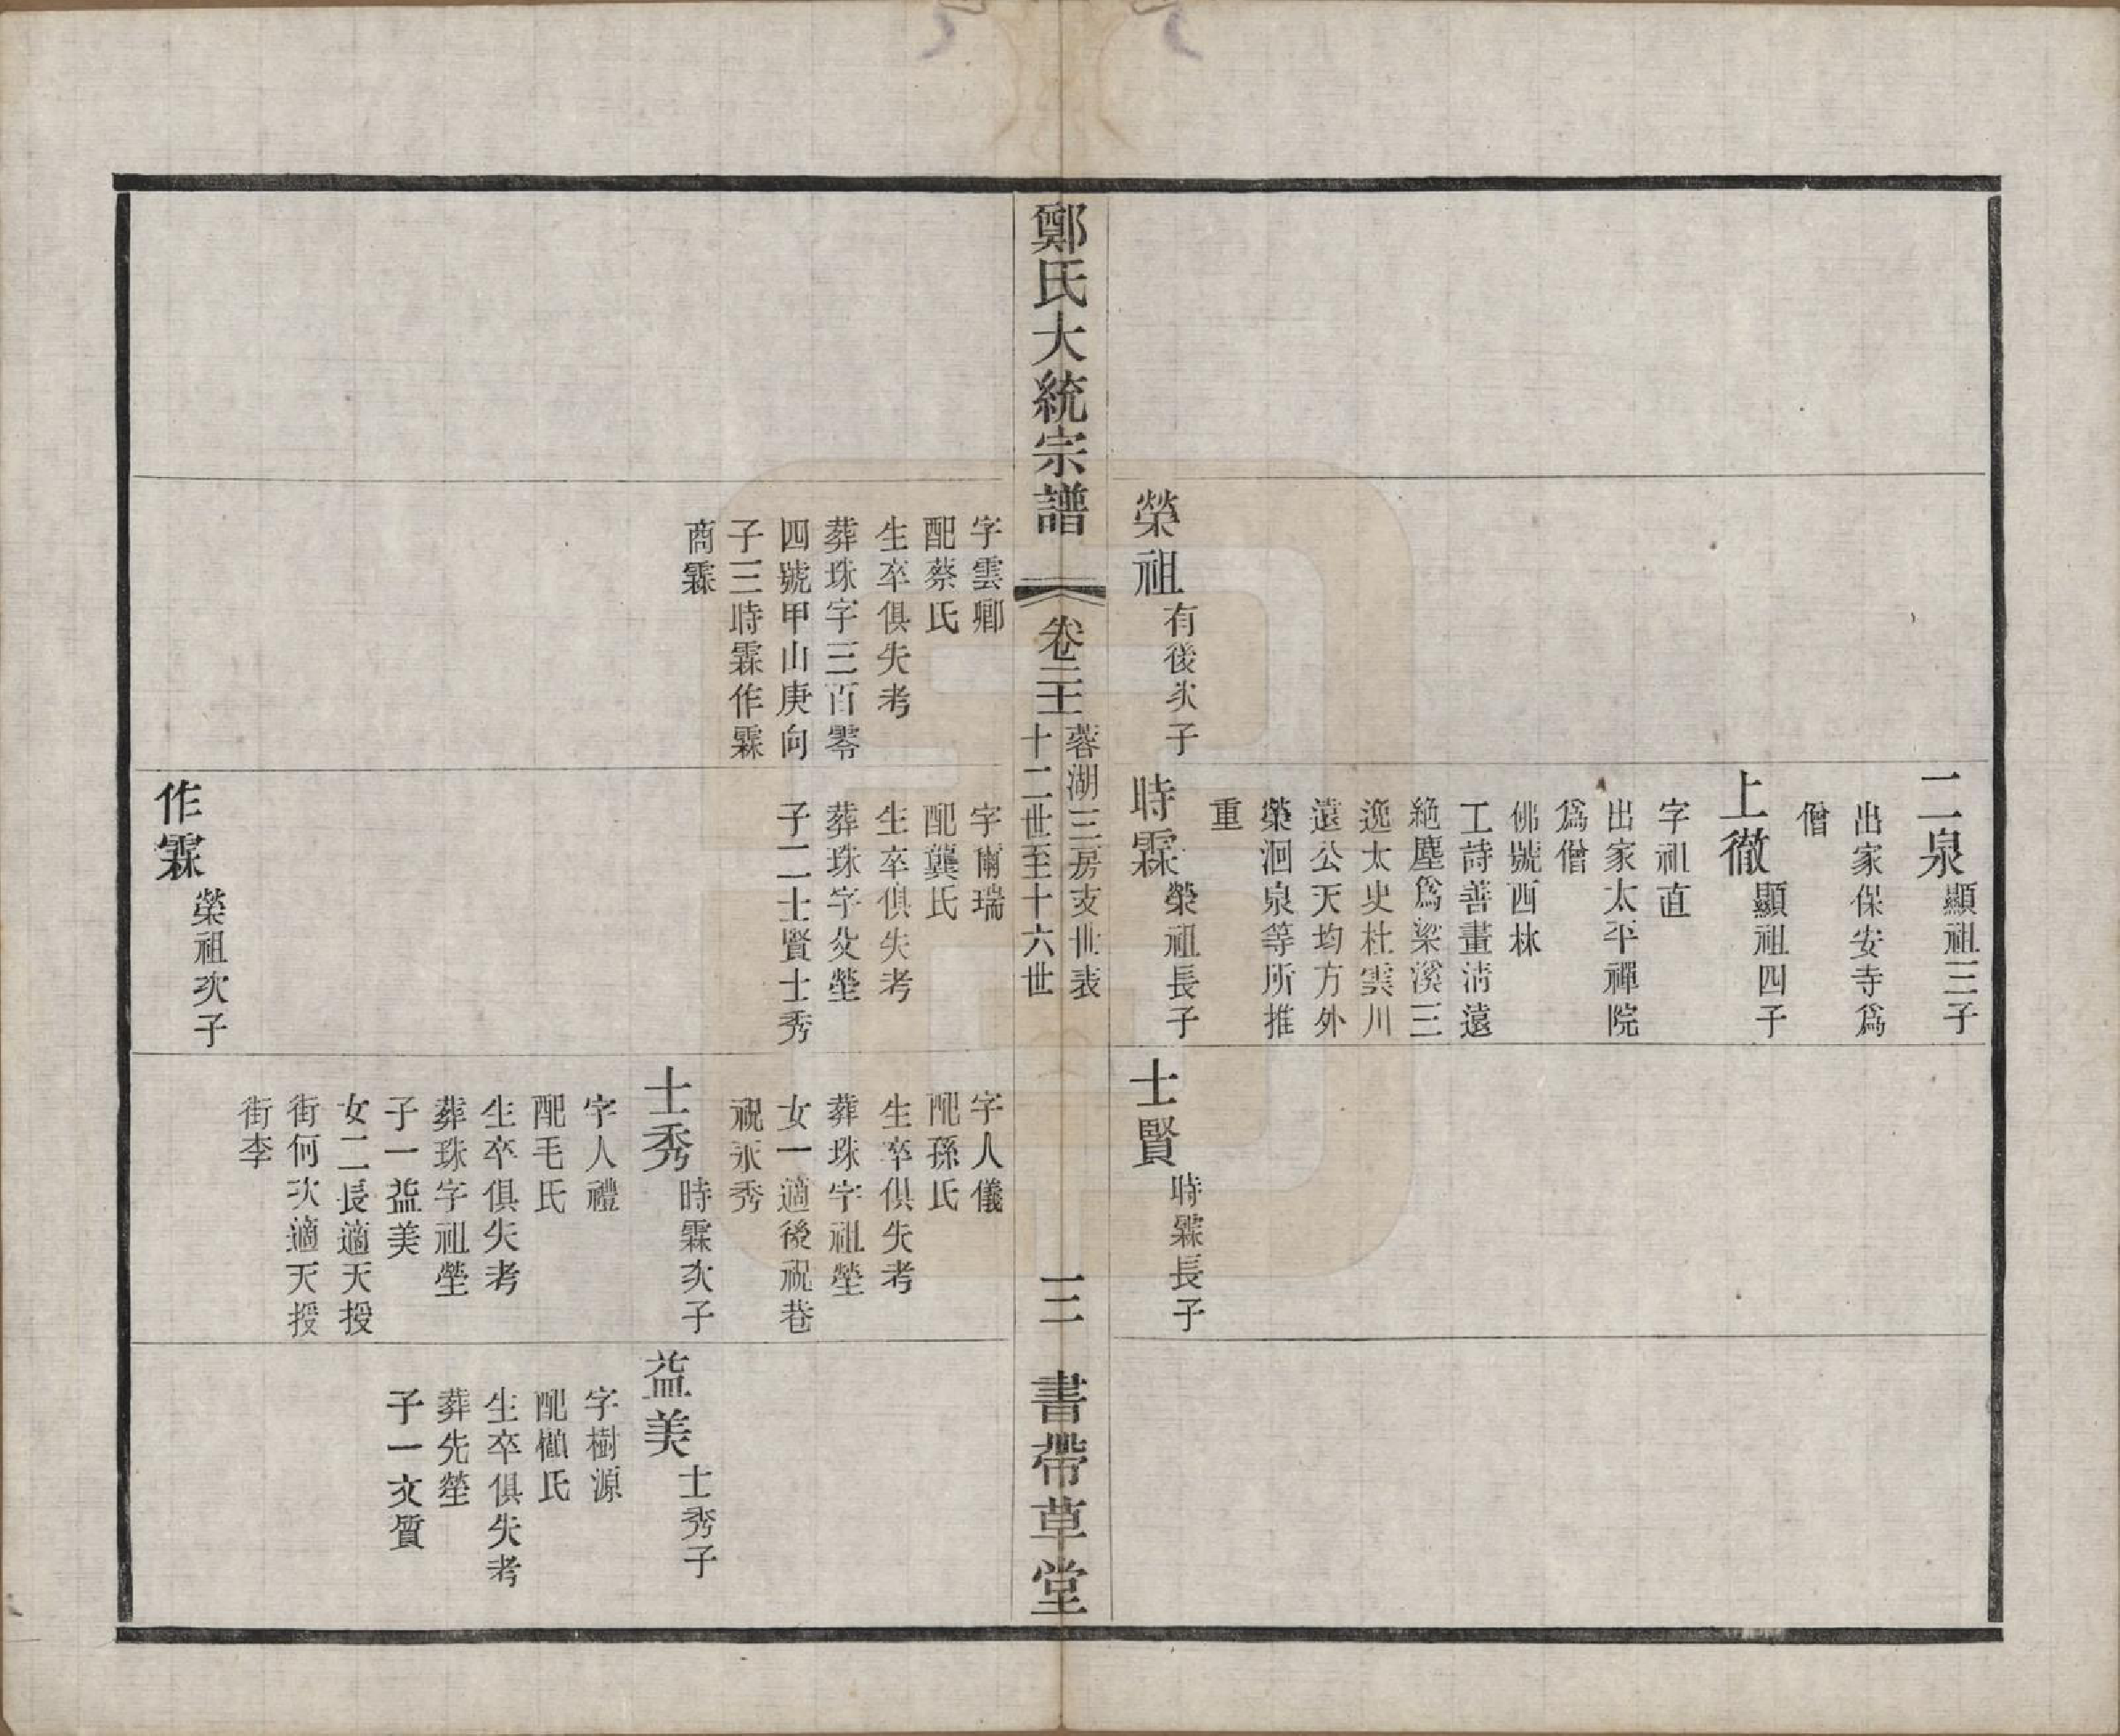 二泉
顯祖三子
出家保安寺爲
僧
上徹
顯祖四子
字祖直
出家太平禪院
爲僧
佛號西林
工詩善畫淸遠
絶塵爲梁溪三
逸太史杜雲川
遠公天均方外
榮洄泉等所推
重
榮祖
有後次子
時霖
榮祖長子
士賢
時霖長子
鄭氏大統宗譜
卷三十
蓉湖三房支世表
十二世至十六世
三
書帶草堂
字雲卿
配蔡氏
生卒俱失考
葬珠字三百零
四號甲山庚向
子三時霖作霖
商霖
字爾瑞
配龔氏
生卒俱失考
葬珠字父塋
子二士賢士秀
字人儀
配孫氏
生卒俱失考
葬珠字祖塋
女一適後祝巷
祝永秀
士秀
時霖次子
字人禮
配毛氏
生卒俱失考
葬珠字祖塋
子一益美
女二長適天授
街何次適天授
街李
益美
士秀子
字樹源
配植氏
生卒俱失考
葬先塋
子一文質
作霖
榮祖次子